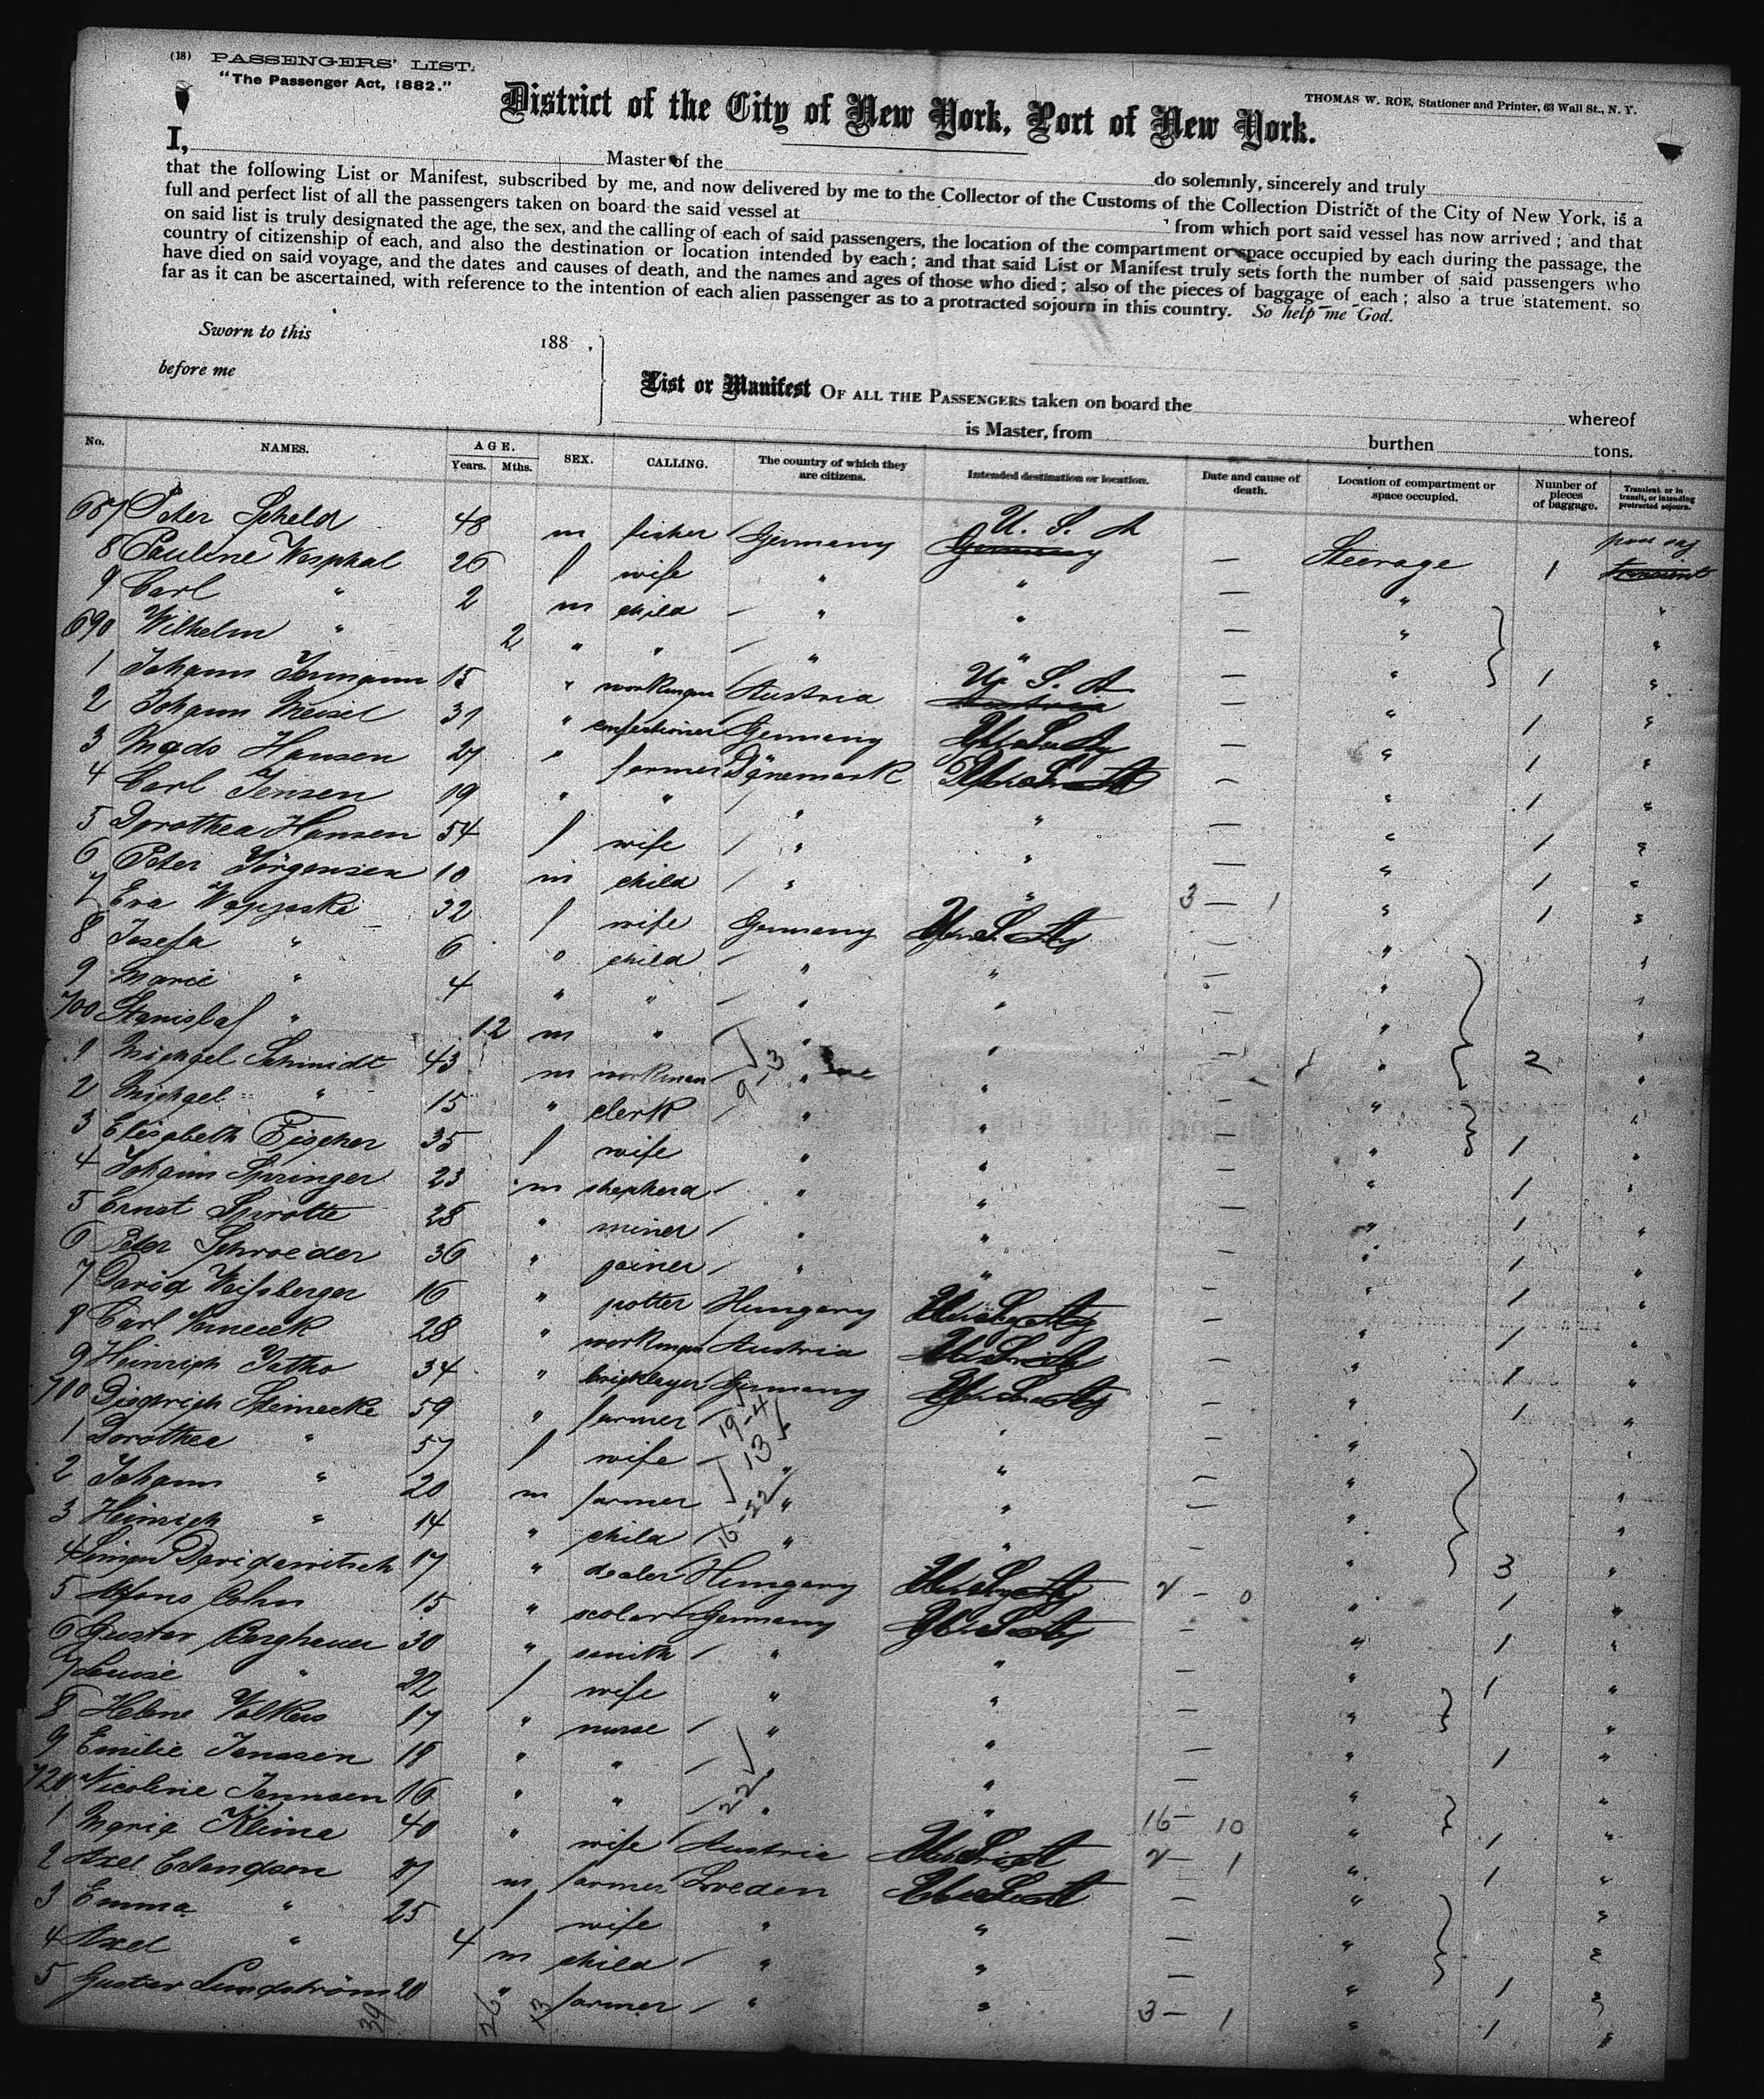 (18) PASSENGERS' LIST.
"The Passenger Act, 1882."
THOMAS W. ROE, Stationer and Printer, 63 Wall St., N. Y.
District of the City of New York, Port of New York.
I, Master of the do solemnly, sincerely and truly
that the following List or Manifest, subscribed by me, and now delivered by me to the Collector of the Customs of the Collection District of the City of New York, is a
full and perfect list of all the passengers taken on board the said vessel at from which port said vessel has now arrived; and that
on said list is truly designated the age, the sex, and the calling of each of said passengers, the location of the compartment or space occupied by each during the passage, the
country of citizenship of each, and also the destination or location intended by each; and that said List or Manifest truly sets forth the number of said passengers who
have died on said voyage, and the dates and causes of death, and the names and ages of those who died; also of the pieces of baggage of each; also a true statement, so
far as it can be ascertained, with reference to the intention of each alien passenger as to a protracted sojourn in this country. So help me God.
Sworn to this 188 .
before me
List or Manifest OF ALL THE PASSENGERS taken on board the whereof
is Master, from burthen tons.
No. NAMES. AGE. Years. Mths. SEX. CALLING. The country of which they are citizens. Intended destination or location. Date and cause of death. Location of compartment or space occupied. Number of pieces of baggage. Transient or in transit, or intending protracted sojourn.
687 Peter Scheld 48 m fisher Germany U. S. A — Steerage 1
8 Pauline Wesphal 26 f wife " " — "
9 Carl " 2 m child " " — "
690 Wilhelm " 2 " " " " — " 1
1 Johann 15 " workman Austria U. S. A — " 1
2 Johann Meisel 31 " confectioner Germany U. S. A — " 1
3 Mads Hansen 27 " farmer Dänemark U. S. A — " 1
4 Carl Jensen 19 " " " " — " 1
5 Dorothea Hansen 54 f wife " " — " 1
6 Peter Jörgensen 10 m child " " 3 — 1 " 1
7 Eva 32 f wife Germany U. S. A — "
8 Josefa " 6 " child " " — "
9 Marie " 4 " " " " — "
700 Stanislaf " 12 m " " " — " 2
1 Michael Schmidt 43 m workman " " — "
2 Michael " 15 " clerk " " — " 1
3 Elisabeth Fischer 35 f wife " " — " 1
4 Johann Springer 23 m shepherd " " — " 1
5 Ernst Sprotte 28 " miner " " — " 1
6 Peter Schroeder 36 " joiner " " — " 1
7 David Weissberger 16 " potter Hungary U. S. A — " 1
8 Carl 28 " workman Austria U. S. A — " 1
9 Heinrich Jatho 34 " bricklayer Germany U. S. A — " 1
710 Diedrich Steinecke 59 " farmer " — "
1 Dorothea " 57 f wife " " — "
2 Johann " 20 m farmer " " — "
3 Heinrich " 14 " child " " — " 3
4 Simon Davidowitsch 17 " dealer Hungary U. S. A 2 — 0 " 1
5 Alfons Cohn 15 " scolar Germany U. S. A — " 1
6 Gustav Berghauer 30 " smith " " — "
7 Louise " 22 f wife " " — " 1
8 Helene Volkers 17 " nurse " " — " 1
9 Emilie Janssen 18 " " " " — "
720 Nicoline Jannsen 16 " " " " 16 — 10 " 1
1 Maria Klima 40 " wife Austria U. S. A 2 — 1 " 1
2 Axel Erlandson 27 m farmer Sveden U. S. A — "
3 Emma " 25 f wife " " — "
4 Axel " 4 m child " " — " 1
5 Gustav Lundström 20 " farmer " " 3 — 1 " 1
39 26 13